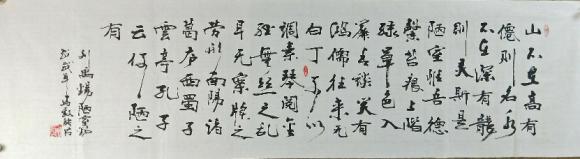 山不在高有
僊則名水
不在深有龍
則靈斯是
陋室惟吾德
馨苔痕上階
綠草色入
簾青談笑有
鴻儒往來無
白丁可以
調素琴閱金
經無絲竹之亂
耳無案牘之
勞形南陽諸
葛廬西蜀子
雲亭孔子
云何陋之
有
劉禹錫陋室銘